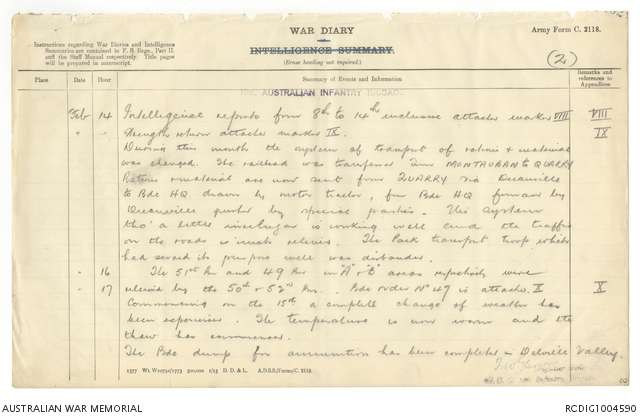 WAR DIARY
or
INTELLIGENCE SUMMARY.
(Erase heading not required.)
Army Form C. 2118.
(2)
Instructions regarding War Diaries and Intelligence
Summaries are contained in F. S. Regs., Part II.
and the Staff Manual respectively. Title pages
will be prepared in manuscript.
Place Date Hour Summary of Events and Information Remarks and references to Appendices
AUSTRALIAN INFANTRY BRIGADE
Feb 14 Intelligence reports from 8th to 14th inclusive attached marked VIII VIII
" Strength return attached marked IX. IX
During this month the system of transport of rations & material
was changed. The railhead was transferred from MONTAUBAN to QUARRY
Rations & material are now sent from QUARRY via Decauville
to Bde HQ drawn by motor tractor, from Bde HQ forward by
Decauville pushed by special parties. This system
tho' a little is working well and the traffic
on the roads is much relieved. The Pack transport troop which
had served its purpose well was disbanded.
" 16 The 51st Bn and 49 Bn in "A" & "B" areas respectively were
" 17 relieved by the 50th & 52nd Bns. Bde order No 47 is attached X X
Commencing on the 15th a complete change of weather has
been experienced. The temperature is now warm and the
thaw has commenced.
The Bde dump for ammunition has been completed in Delville Valley.
1577 Wt. W10791/1773 500,000 1/15 D. D. & L. A.D.S.S./Forms/C. 2118.
AUSTRALIAN WAR MEMORIAL
RCDIG1004590